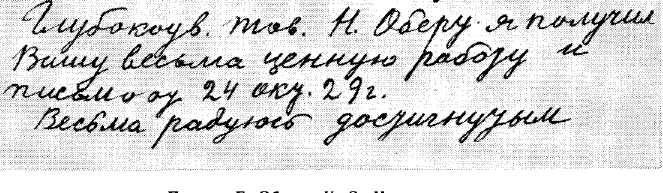 Глубокоув. тов. Н. Оберу я получил
Вашу весьма ценную работу и
письмо от 24 окт. 29г.
Весьма радуюсь достигнутым